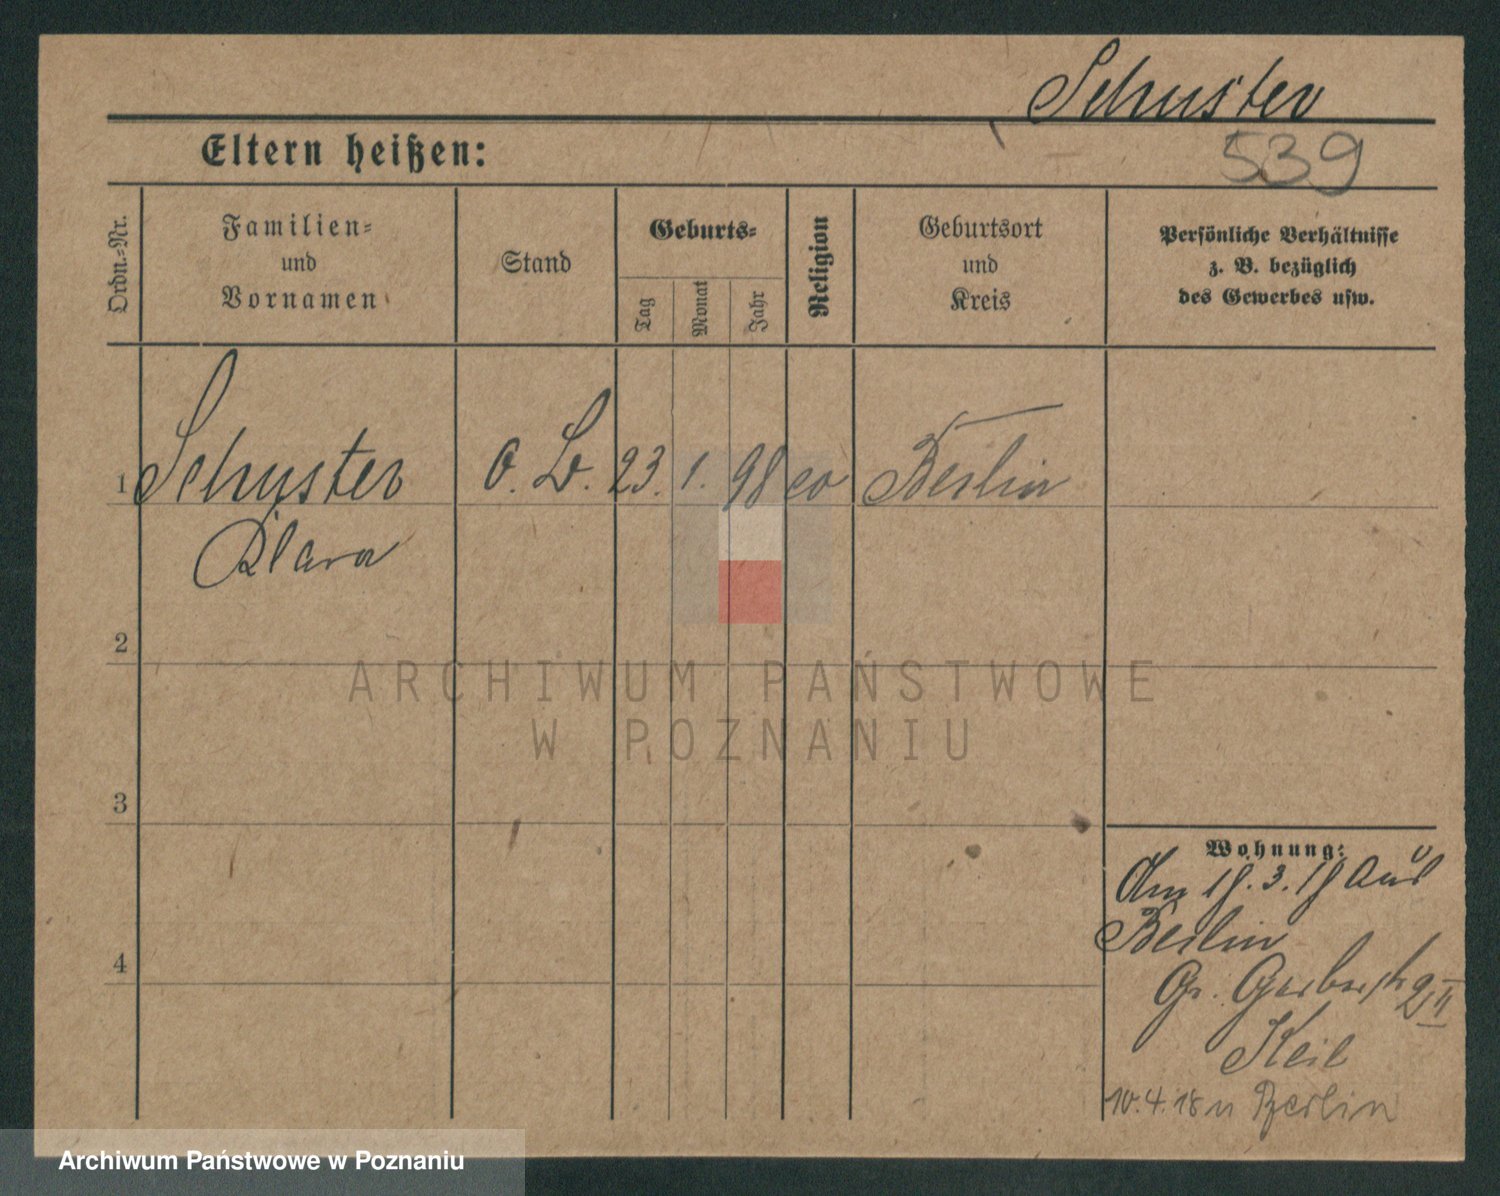 Schuster
Eltern heißen:
539
Ordn.-Nr.
Familien-
und
Vornamen
Stand
Geburts-
Tag
Monat
Jahr
Religion
Geburtsort
und
Kreis
Persönliche Verhältnisse
z. B. bezüglich
des Gewerbes usw.
1 Schuster O. B. 23. 1. 98 ev Berlin
Klara
2
ARCHIWUM PAŃSTWOWE
W POZNANIU
3
Wohnung:
Am 18. 3. 18 aus
Berlin
4
Gr. Gerberstr 2 II
Keil
10. 4. 18 n Berlin
Archiwum Państwowe w Poznaniu